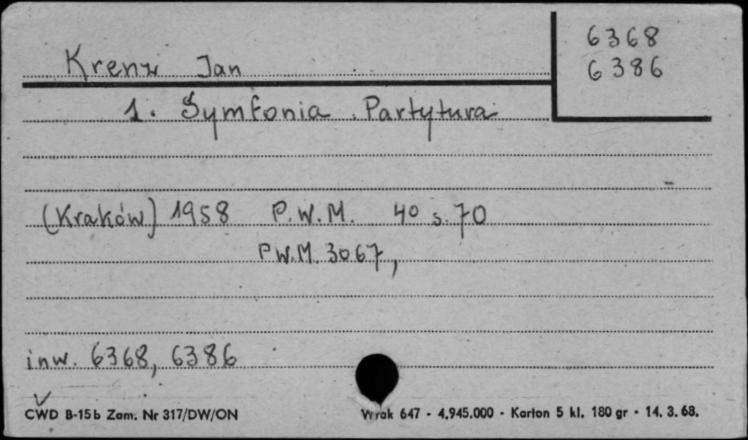 6368
Krenz Jan
6386
1. Symfonia. Partytura
(Kraków) 1958 P.W.M. 4° s. 70
P.W.M. 3067,
inw. 6368, 6386
CWD B-15b Zam. Nr 317/DW/ON
Wrak 647 - 4.945.000 - Karton 5 kl. 180 gr - 14. 3. 68.